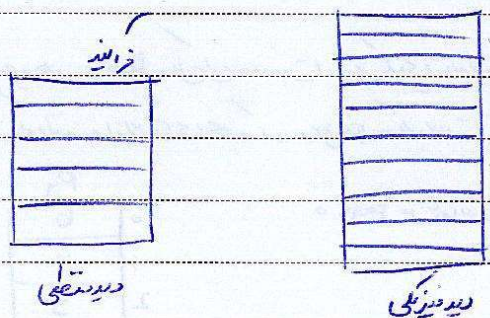 فرایند
دید منطقی
دید فیزیکی